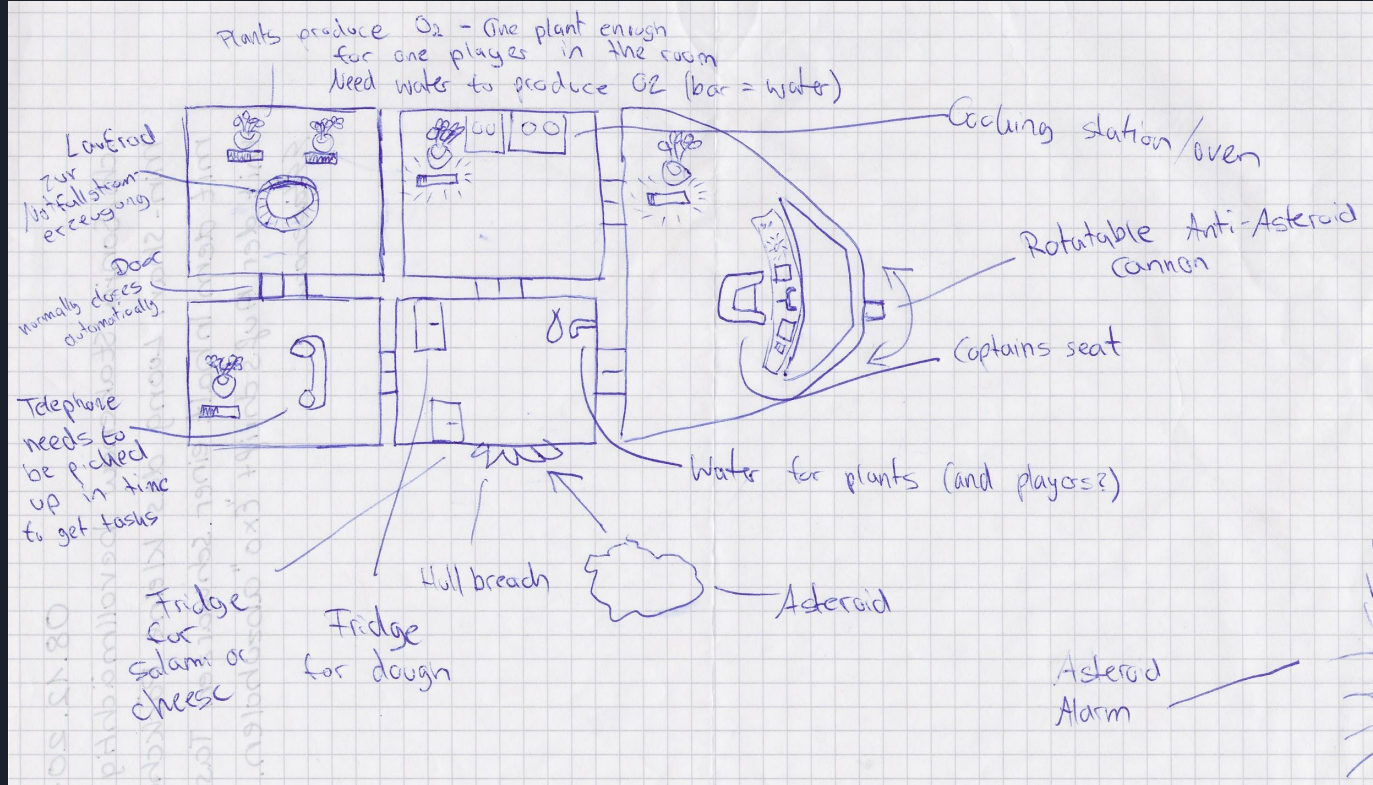 Plants produce O2 - One plant enough
for one player in the room
Need water to produce O2 (bar = water)
Cooking station/oven
Laufrad
zur
Notfallstrom-
erzeugung
Door
normally closes
automatically
Rotatable Anti-Asteroid
cannon
Captains seat
Telephone
needs to
be picked
up in time
to get tasks
Water for plants (and players?)
Hull breach
Asteroid
Fridge
for
salami or
cheese
Fridge
for dough
Asteroid
Alarm
08.12.20